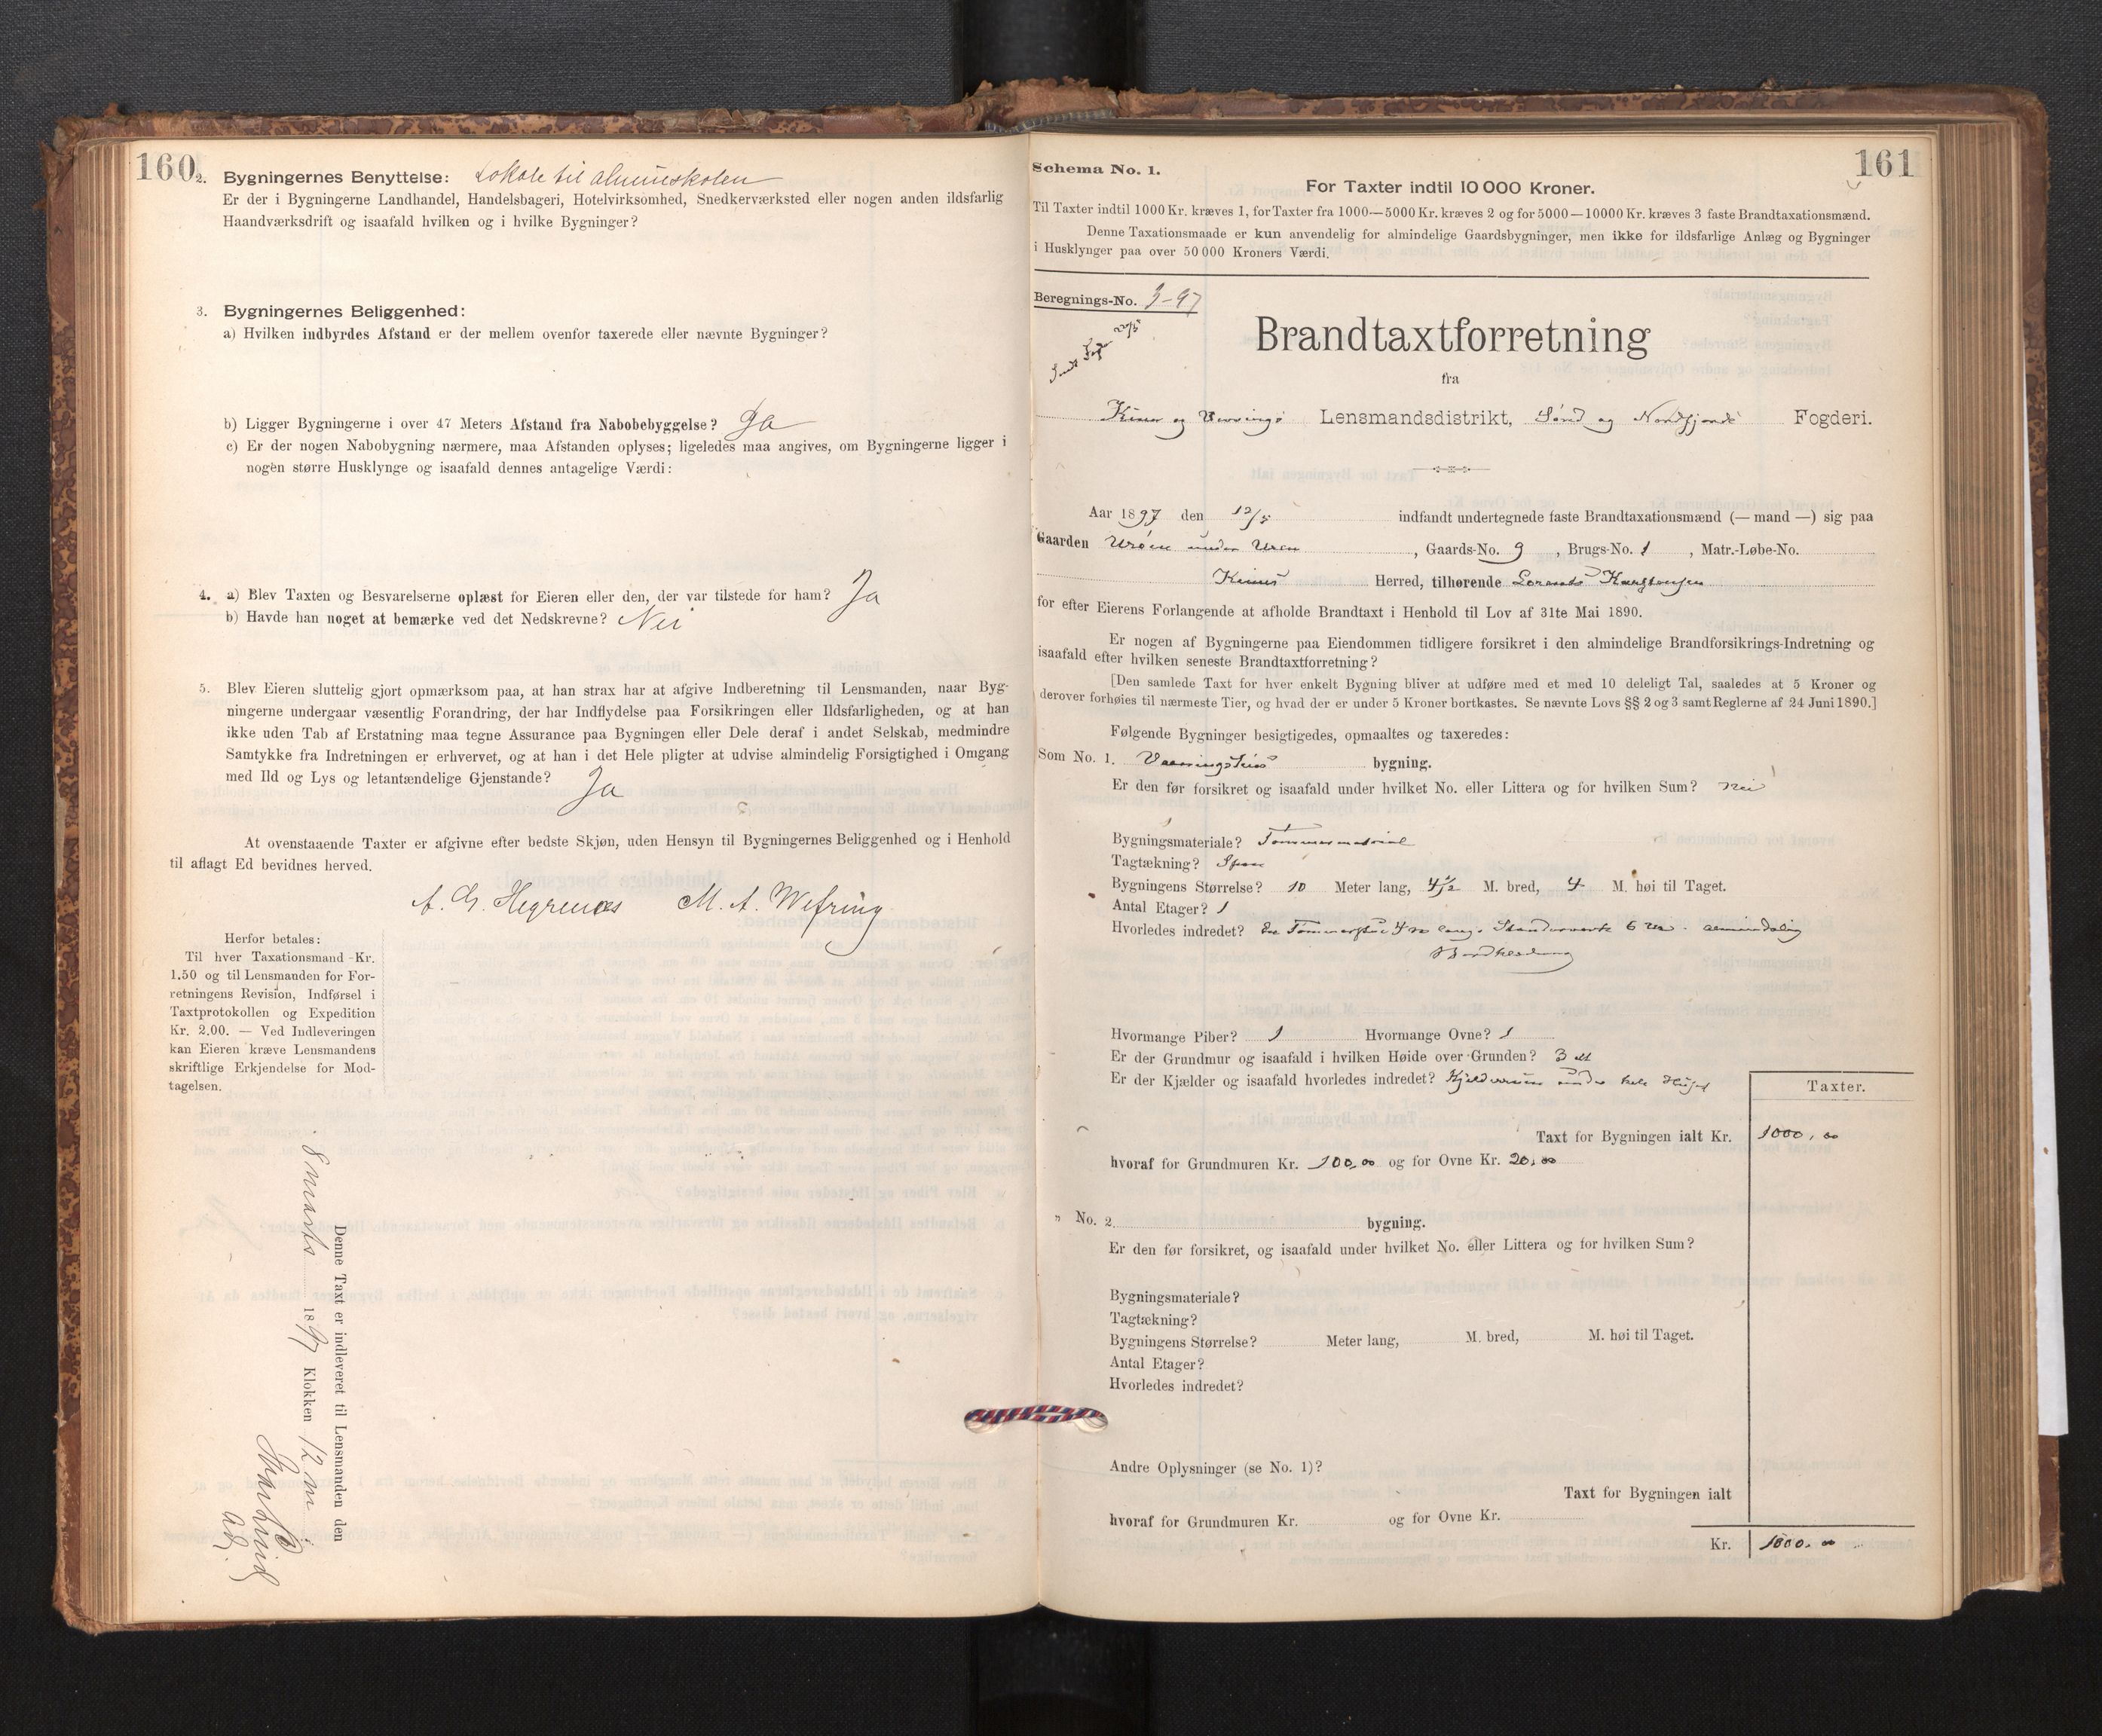 160
2. Bygningernes Benyttelse: Lokale til almueskolen
Er der i Bygningerne Landhandel, Handelsbageri, Hotelvirksomhed, Snedkerværksted eller nogen anden ildsfarlig
Haandværksdrift og isaafald hvilken og i hvilke Bygninger?
3. Bygningernes Beliggenhed:
a) Hvilken indbyrdes Afstand er der mellem ovenfor taxerede eller nævnte Bygninger?
b) Ligger Bygningerne i over 47 Meters Afstand fra Nabobebyggelse? Ja
c) Er der nogen Nabobygning nærmere, maa Afstanden oplyses; ligeledes maa angives, om Bygningerne ligger i
nogen større Husklynge og isaafald dennes antagelige Værdi:
4. a) Blev Taxten og Besvarelserne oplæst for Eieren eller den, der var tilstede for ham? Ja
b) Havde han noget at bemærke ved det Nedskrevne? Nei
5. Blev Eieren sluttelig gjort opmærksom paa, at han strax har at afgive Indberetning til Lensmanden, naar Byg-
ningerne undergaar væsentlig Forandring, der har Indflydelse paa Forsikringen eller Ildsfarligheden, og at han
ikke uden Tab af Erstatning maa tegne Assurance paa Bygningen eller Dele deraf i andet Selskab, medmindre
Samtykke fra Indretningen er erhvervet, og at han i det Hele pligter at udvise almindelig Forsigtighed i Omgang
med Ild og Lys og letantændelige Gjenstande? Ja
At ovenstaaende Taxter er afgivne efter bedste Skjøn, uden Hensyn til Bygningernes Beliggenhed og i Henhold
til aflagt Ed bevidnes herved.
A. G. Hegrenæs M. A. Wefring
Herfor betales:
Til hver Taxationsmand Kr.
1.50 og til Lensmanden for For-
retningens Revision, Indførsel i
Taxtprotokollen og Expedition
Kr. 2.00. — Ved Indleveringen
kan Eieren kræve Lensmandens
skriftlige Erkjendelse for Mod-
tagelsen.
Denne Taxt er indleveret til Lensmanden den
8 marts 1897 Klokken 12 m
161
Schema No. 1.
For Taxter indtil 10 000 Kroner.
Til Taxter indtil 1000 Kr. kræves 1, for Taxter fra 1000—5000 Kr. kræves 2 og for 5000—10000 Kr. kræves 3 faste Brandtaxationsmænd.
Denne Taxationsmaade er kun anvendelig for almindelige Gaardsbygninger, men ikke for ildsfarlige Anlæg og Bygninger
i Husklynger paa over 50 000 Kroners Værdi.
Beregnings-No. 3-97
Brandtaxtforretning
fra
Kinn og Lensmandsdistrikt, Sønd og Nordfjords Fogderi.
Aar 1897 den 12/5 indfandt undertegnede faste Brandtaxationsmænd (— mand —) sig paa
Gaarden under Uren, Gaards-No. 9, Brugs-No. 1, Matr.-Løbe-No.
Kinns Herred, tilhørende Lorents Karstensen
for efter Eierens Forlangende at afholde Brandtaxt i Henhold til Lov af 31te Mai 1890.
Er nogen af Bygningerne paa Eiendommen tidligere forsikret i den almindelige Brandforsikrings-Indretning og
isaafald efter hvilken seneste Brandtaxtforretning?
[Den samlede Taxt for hver enkelt Bygning bliver at udføre med et med 10 deleligt Tal, saaledes at 5 Kroner og
derover forhøies til nærmeste Tier, og hvad der er under 5 Kroner bortkastes. Se nævnte Lovs §§ 2 og 3 samt Reglerne af 24 Juni 1890.]
Følgende Bygninger besigtigedes, opmaaltes og taxeredes:
Som No. 1. Vaaningshus bygning.
Er den før forsikret og isaafald under hvilket No. eller Littera og for hvilken Sum? Nei
Bygningsmateriale? Tømmermatrial
Tagtækning? Spon
Bygningens Størrelse? 10 Meter lang, 4½ M. bred, 4 M. høi til Taget.
Antal Etager? 1
Hvorledes indredet? En Tømmerstue 4 m lang. Standerverk 6 m. almindelig
Bordklædning
Hvormange Piber? 1 Hvormange Ovne? 1
Er der Grundmur og isaafald i hvilken Høide over Grunden? 3 al
Er der Kjælder og isaafald hvorledes indredet? under hele Huset
Taxter.
Taxt for Bygningen ialt Kr. 1000,00
hvoraf for Grundmuren Kr. 100,00 og for Ovne Kr. 20,00
" No. 2. bygning.
Er den før forsikret, og isaafald under hvilket No. eller Littera og for hvilken Sum?
Bygningsmateriale?
Tagtækning?
Bygningens Størrelse? Meter lang, M. bred, M. høi til Taget.
Antal Etager?
Hvorledes indredet?
Andre Oplysninger (se No. 1)?
Taxt for Bygningen ialt
hvoraf for Grundmuren Kr. og for Ovne Kr.
Kr. 1000.00